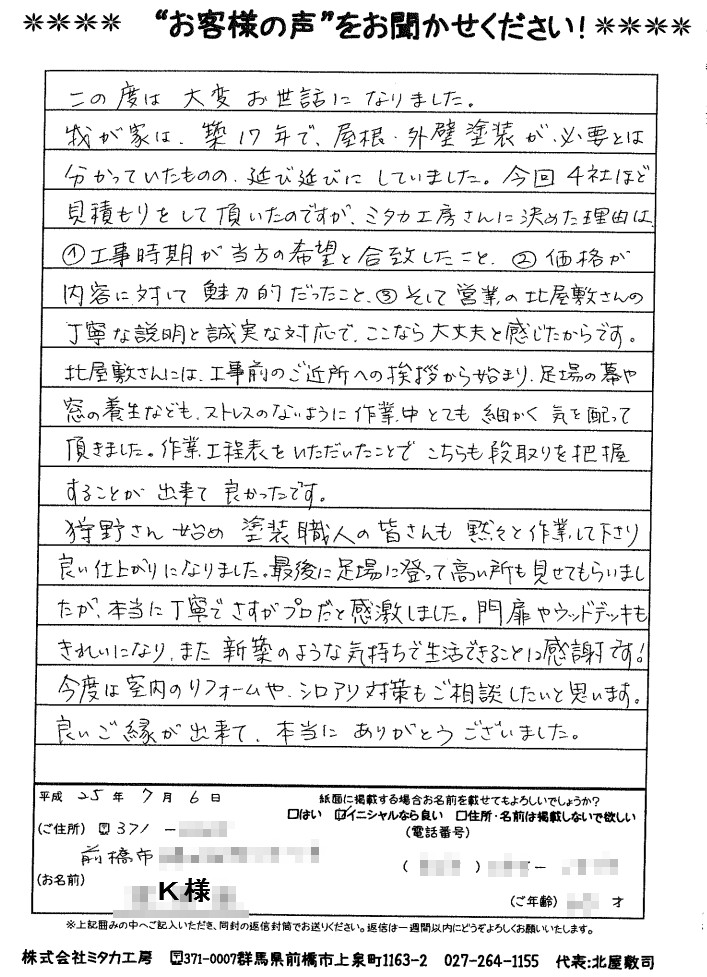 ＊＊＊＊ “お客様の声”をお聞かせください！＊＊＊＊
この度は 大変 お世話になりました。
我が家は、築17年で、屋根・外壁塗装が、必要とは
分かっていたものの、延び延びにしていました。今回4社ほど
見積もりをして頂いたのですが、ミタカ工房さんに決めた理由は、
①工事時期が当方の希望と合致したこと、②価格が
内容に対して魅力的だったこと、③そして営業の北屋敷さんの
丁寧な説明と誠実な対応で、ここなら大丈夫と感じたからです。
北屋敷さんには、工事前のご近所への挨拶から始まり、足場の幕や
窓の養生なども、ストレスのないように作業中とても細かく気を配って
頂きました。作業工程表をいただいたことでこちらも段取りを把握
することが出来て良かったです。
狩野さん始め塗装職人の皆さんも黙々と作業して下さり
良い仕上がりになりました。最後に足場に登って高い所も見せてもらいまし
たが、本当に丁寧でさすがプロだと感激しました。門扉やウッドデッキも
きれいになり、また新築のような気持ちで生活できることに感謝です！
今度は室内のリフォームや、シロアリ対策もご相談したいと思います。
良いご縁が出来て、本当にありがとうございました。
平成 25年 7月 6日
紙面に掲載する場合お名前を載せてもよろしいでしょうか？
□はい ☑イニシャルなら良い □住所・名前は掲載しないで欲しい
(ご住所) 〒371－
(電話番号)
前橋市
( ) －
(お名前)
K様
(ご年齢) 才
※上記囲みの中へご記入いただき、同封の返信封筒でお送りください。返信は一週間以内にどうぞよろしくお願いいたします。
株式会社ミタカ工房 〒371-0007群馬県前橋市上泉町1163-2 027-264-1155 代表:北屋敷司